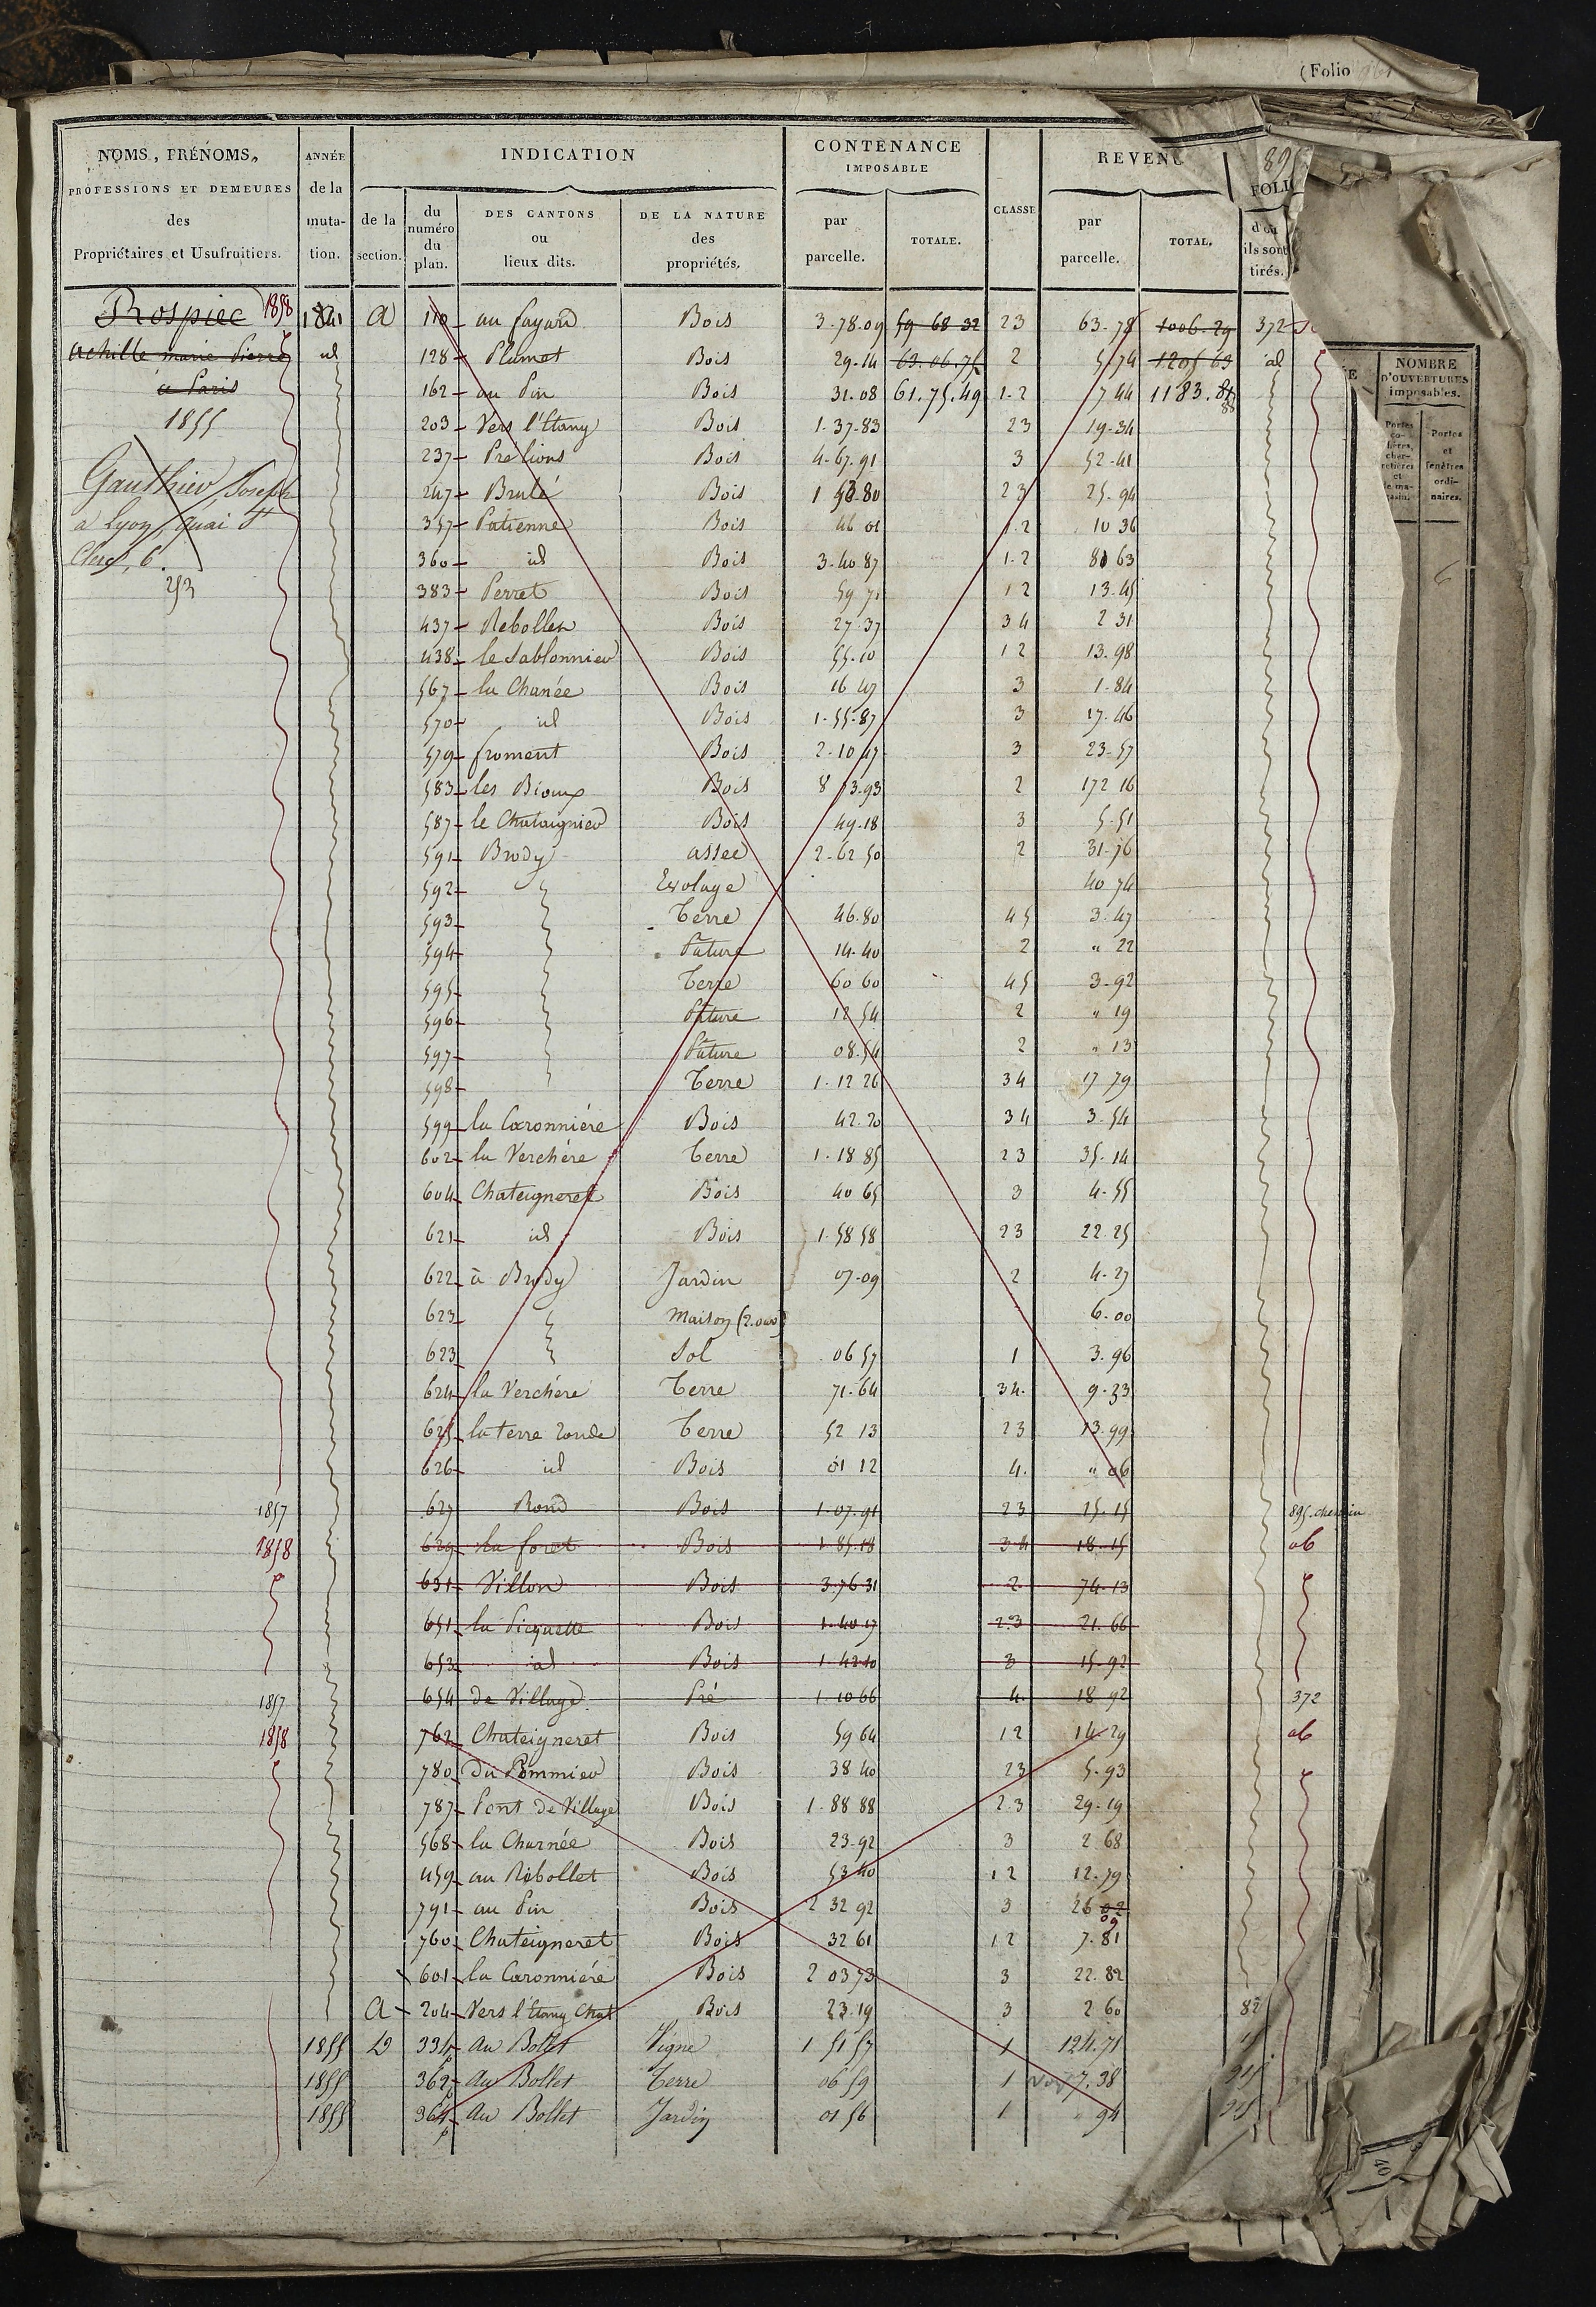 (Folio
NOMS, PRÉNOMS, PROFESSIONS ET DEMEURES des Propriétaires et Usufruitiers.
ANNÉE de la mutation.
INDICATION
de la section.
du numéro du plan.
DES CANTONS ou lieux dits.
DE LA NATURE des propriétés.
CONTENANCE IMPOSABLE
par parcelle.
TOTALE.
CLASSE
REVENU
par parcelle.
TOTAL.
89
FOLIO
d'où ils sont tirés.
NOMBRE D'OUVERTURES imposables.
Portes et fenêtres ordinaires.
Rospiec 1858
achille marie Pierre
à Paris
1855
Gauthier Joseph
a Lyon, quai St
Clerc, 6.
253
1841 a 110 au fayard Bois 3.78.09 59 68 32 23 63.78 1006.29 372
id 128 Plumet Bois 29.14 63.06.75 2 5.74 1205 63 id
162 au Pin Bois 31.08 61.75.49 1.2 7 44 1183.88
203 Vers l'Etang Bois 1.37.83 23 19.34
237 Pré lions Bois 4.67.91 3 52.41
247 Brulé Bois 1 53.80 23 25.94
357 Patienne Bois 46 01 1.2 10 36
360 id Bois 3.40 87 1.2 81 63
383 Perret Bois 59 71 12 13.45
437 Rebollet Bois 27.37 34 2 31
438 le Sablonnier Bois 55.10 12 13.98
567 la Chanée Bois 16 47 3 1.84
570 id Bois 1.55.87 3 17.46
579 froment Bois 2.10 47 3 23.57
583 les Bioux Bois 8 73.93 2 172 16
587 le Chataignier Bois 49.18 3 5.51
591 Brody assec 2.62 50 2 31.76
592 Evolage 40 74
593 Terre 46.80 45 3.47
594 Pâture 14.40 2 " 22
595 Terre 60 60 45 3.92
596 Pâture 12 54 2 " 19
597 Pâture 08.54 2 " 13
598 Terre 1.12 26 34 17 79
599 la Caronnière Bois 42.20 34 3.54
602 la Verchère Terre 1.18 85 23 35.14
604 Chateigneret Bois 40 65 3 4.55
621 id Bois 1.58 58 23 22.25
622 à Brody Jardin 07.09 2 4.27
623 maison 6.00
623 Sol 06 57 1 3.96
624 la Verchère Terre 71.64 34. 9.33
625 la terre ronde Terre 52 13 23 13.99
626 id Bois 01 12 4. " 06
1857 627 Rond Bois 1.07.91 23 15.15 895. chemin
1858 629 la foret Bois 1.85.18 34 18.15 ab
631 Villon Bois 3.76 31 2 74.13
651 la Picquette Bois 1.40 17 2.3 21.66
653 id Bois 1.42 10 3 15.92
1857 654 de Village Pré 1.10 66 4. 18 92 372
1858 762 Chateigneret Bois 59 64 12 14.29 ab
780 du Pommier Bois 38 40 23 5.93
787 Pont de Village Bois 1.88 88 2.3 29.19
568 la Charnée Bois 23.92 3 2 68
459 au Rebollet Bois 53 40 12 12.79
791 au Pin Bois 2 32 92 3 26 02 09
760 Chateigneret Bois 32 61 12 7.81
601 la Caronnière Bois 2 03 73 3 22.82
a 204 Vers l'Etang Chat Bois 23.19 3 2 60 82
1855 D 334 p au Bollet Vigne 1 51 57 1 124.71
1855 362 p au Bollet Terre 06 59 1 7.38
1855 364 p au Bollet Jardin 01 56 1 " 94